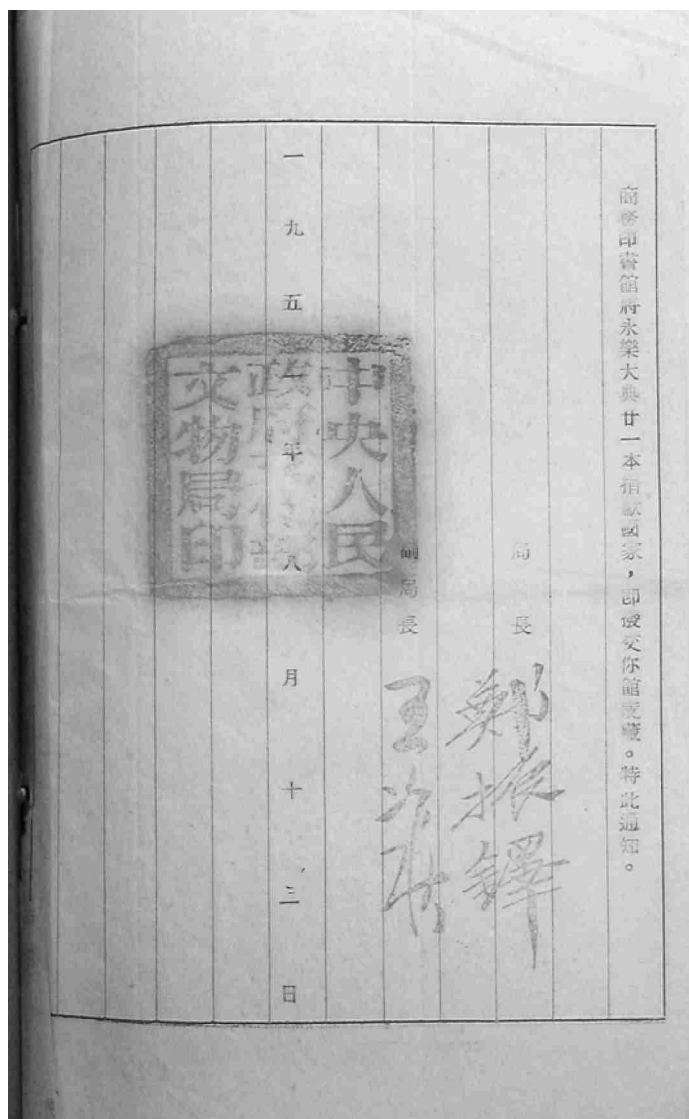 商務印書館將永樂大典廿一本捐獻國家，即發交你館庋藏。特此通知。
局長 鄭振鐸
副局長 王冶秋
一九五一年八月十三日
中央人民
政府文化部
文物局印